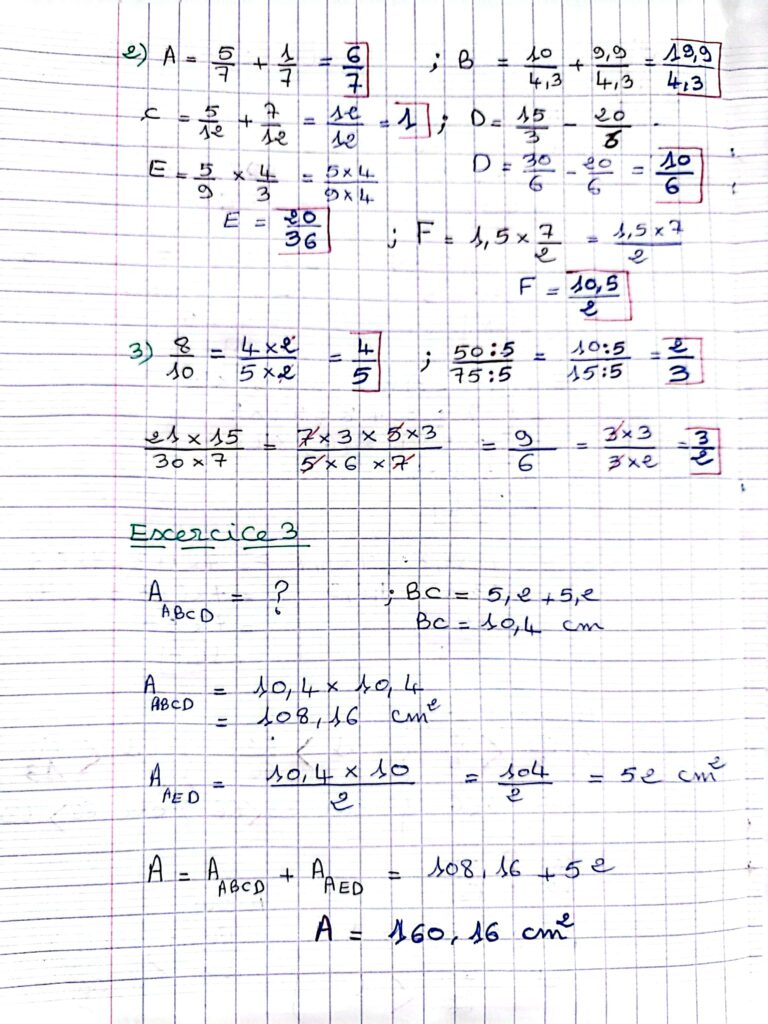 2) A = 5/7 + 1/7 = 6/7 ; B = 10/4,3 + 9,9/4,3 = 19,9/4,3
C = 5/12 + 7/12 = 12/12 = 1 ; D = 15/3 - 20/6
E = 5/9 × 4/3 = 5×4/9×4 D = 30/6 - 20/6 = 10/6
E = 20/36 ; F = 1,5 × 7/2 = 1,5×7/2
F = 10,5/2
3) 8/10 = 4×2/5×2 = 4/5 ; 50:5/75:5 = 10:5/15:5 = 2/3
21×15/30×7 = 7×3×5×3/5×6×7 = 9/6 = 3×3/3×2 = 3/2
Exercice 3
A ABCD = ? ; BC = 5,2 + 5,2
BC = 10,4 cm
A ABCD = 10,4 × 10,4
= 108,16 cm²
A AED = 10,4 × 10/2 = 104/2 = 52 cm²
A = A ABCD + A AED = 108,16 + 52
A = 160,16 cm²